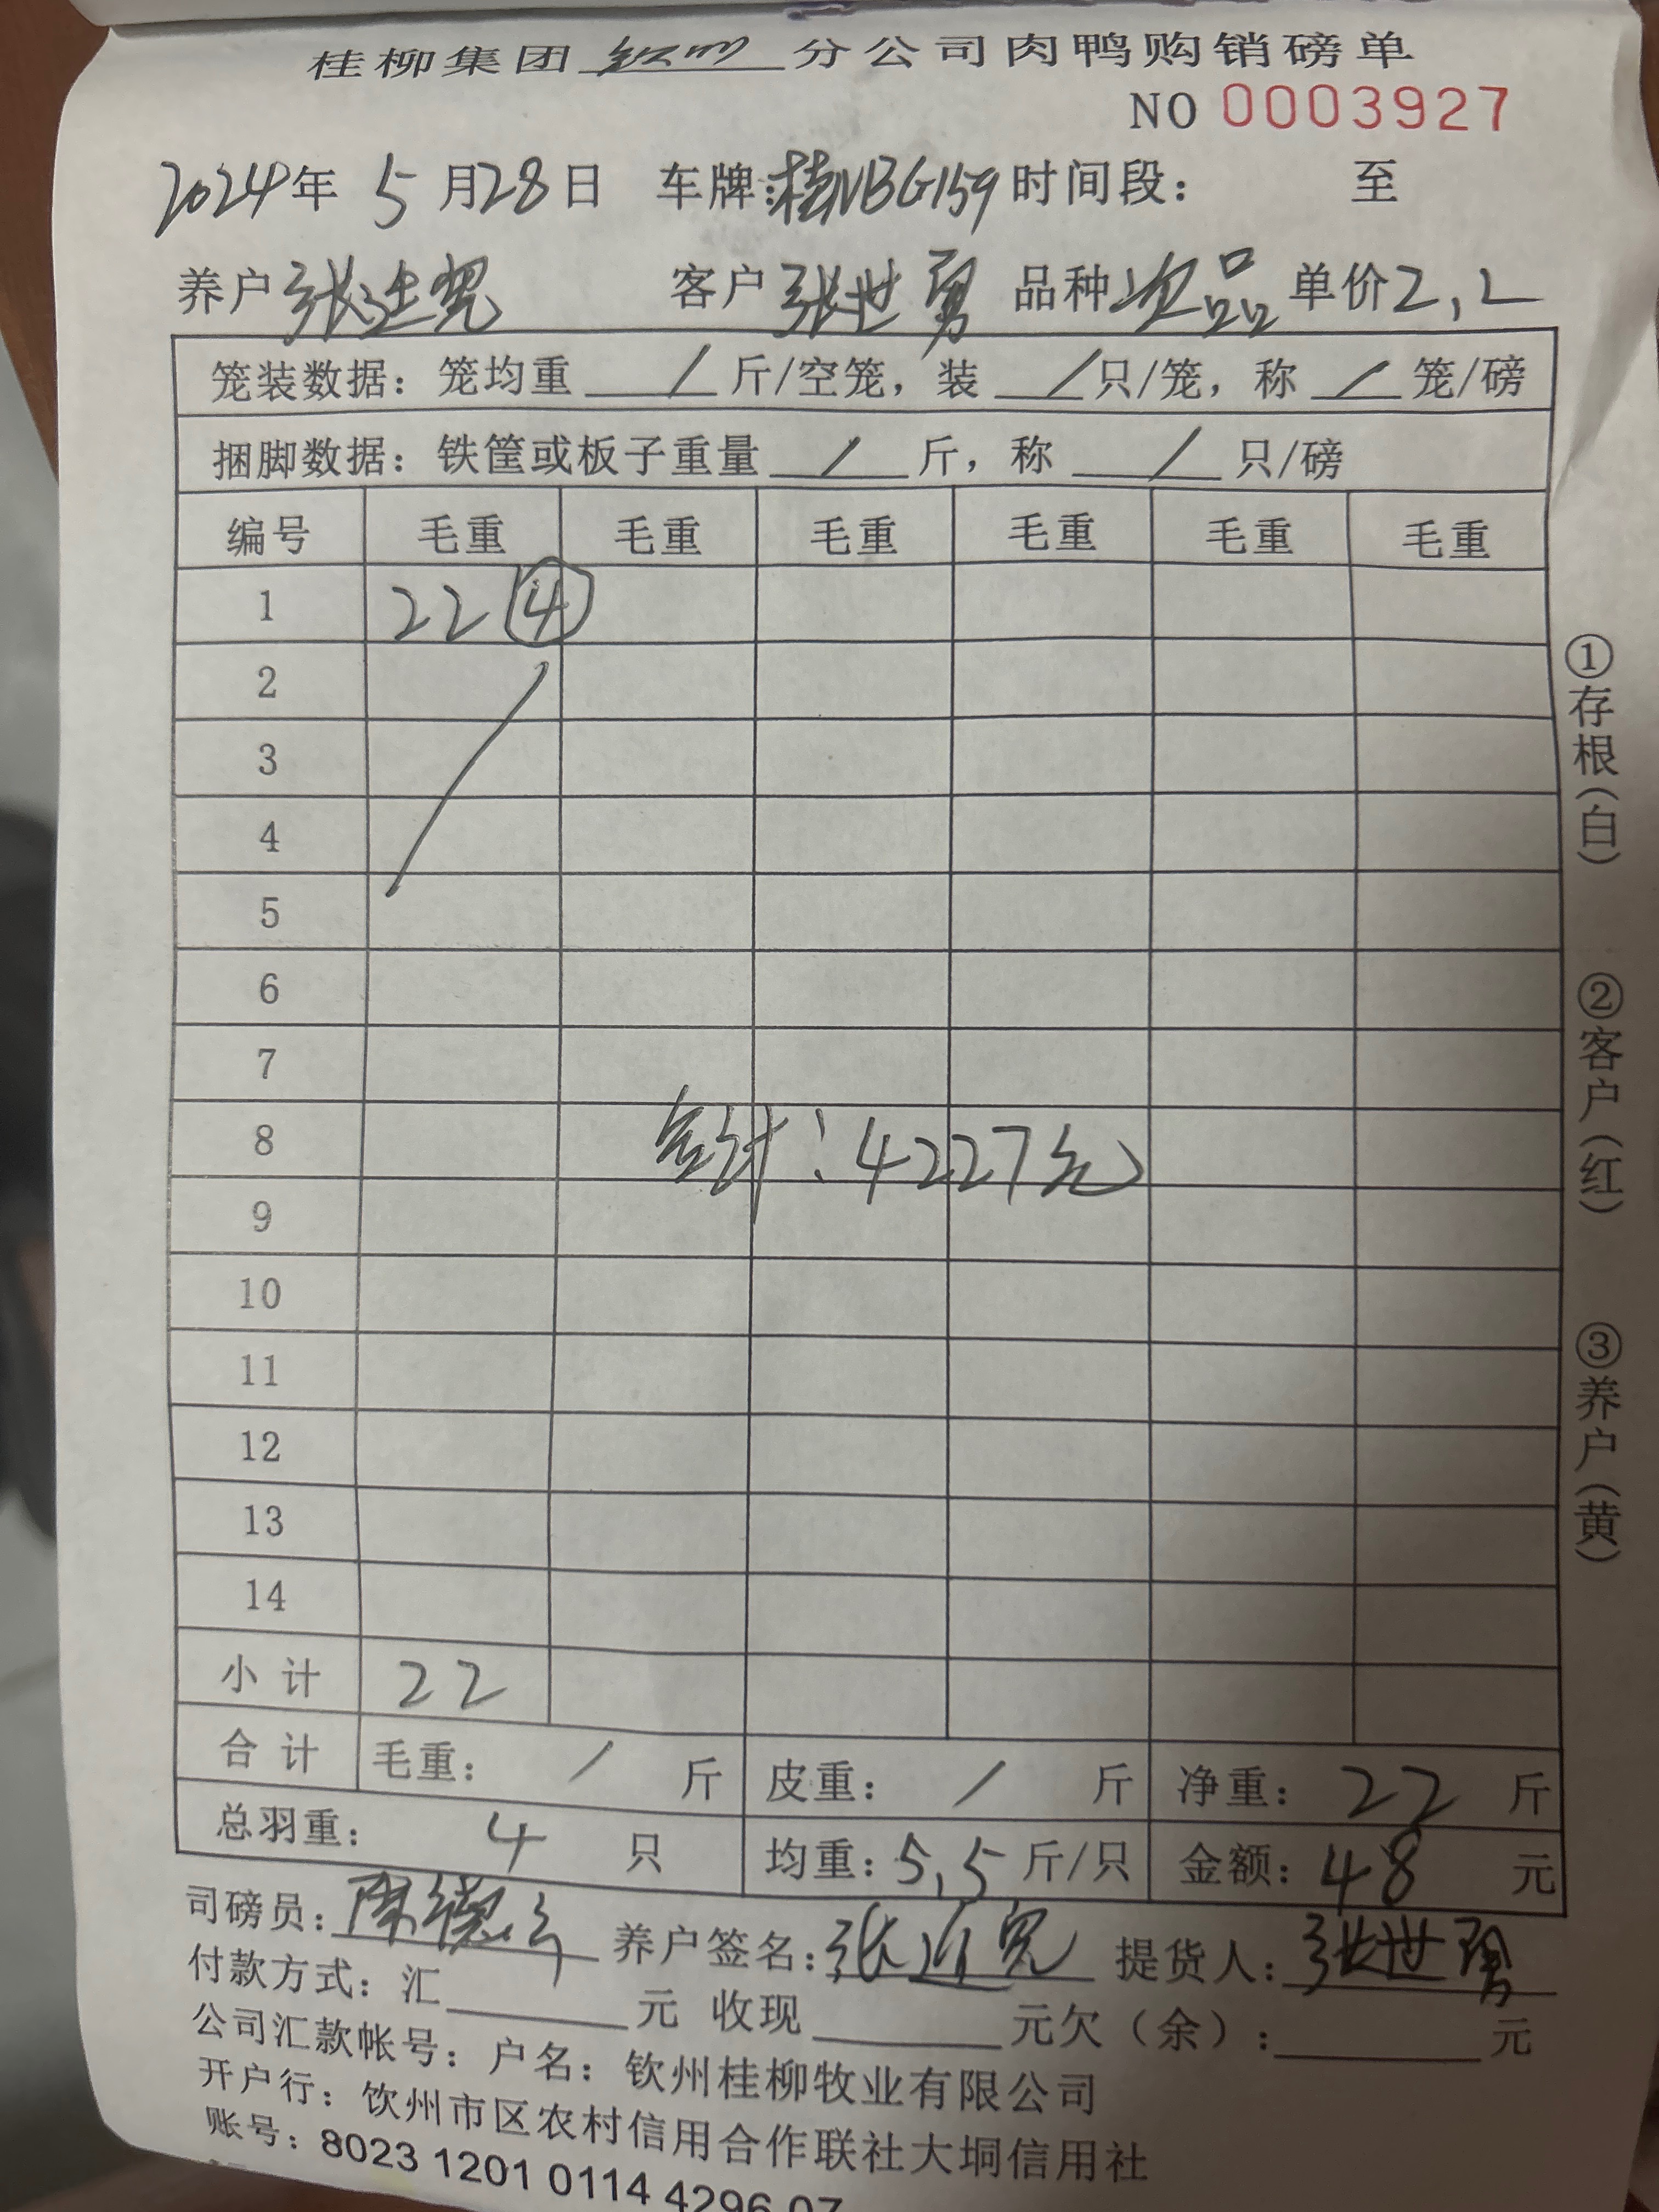 桂柳集团 钦州 分公司肉鸭购销磅单
NO 0003927
2024年 5月28日 车牌:桂NBG159 时间段: 至
养户 张 客户 张世勇 品种 次品 单价 2,2
笼装数据: 笼均重 / 斤/空笼, 装 / 只/笼, 称 / 笼/磅
捆脚数据: 铁筐或板子重量 / 斤, 称 / 只/磅
编号 毛重 毛重 毛重 毛重 毛重 毛重
1 22 ④
2
3
4
5
6
7
8 合计: 4227元
9
10
11
12
13
14
小计 22
合计 毛重: / 斤 皮重: / 斤 净重: 22 斤
总羽重: 4 只 均重: 5,5 斤/只 金额: 48 元
司磅员: 陈德 养户签名: 张 提货人: 张世勇
付款方式: 汇 元 收现 元欠(余): 元
公司汇款帐号: 户名: 钦州桂柳牧业有限公司
开户行: 饮州市区农村信用合作联社大垌信用社
账号: 8023 1201 0114 4296 07
①存根(白)
②客户(红)
③养户(黄)